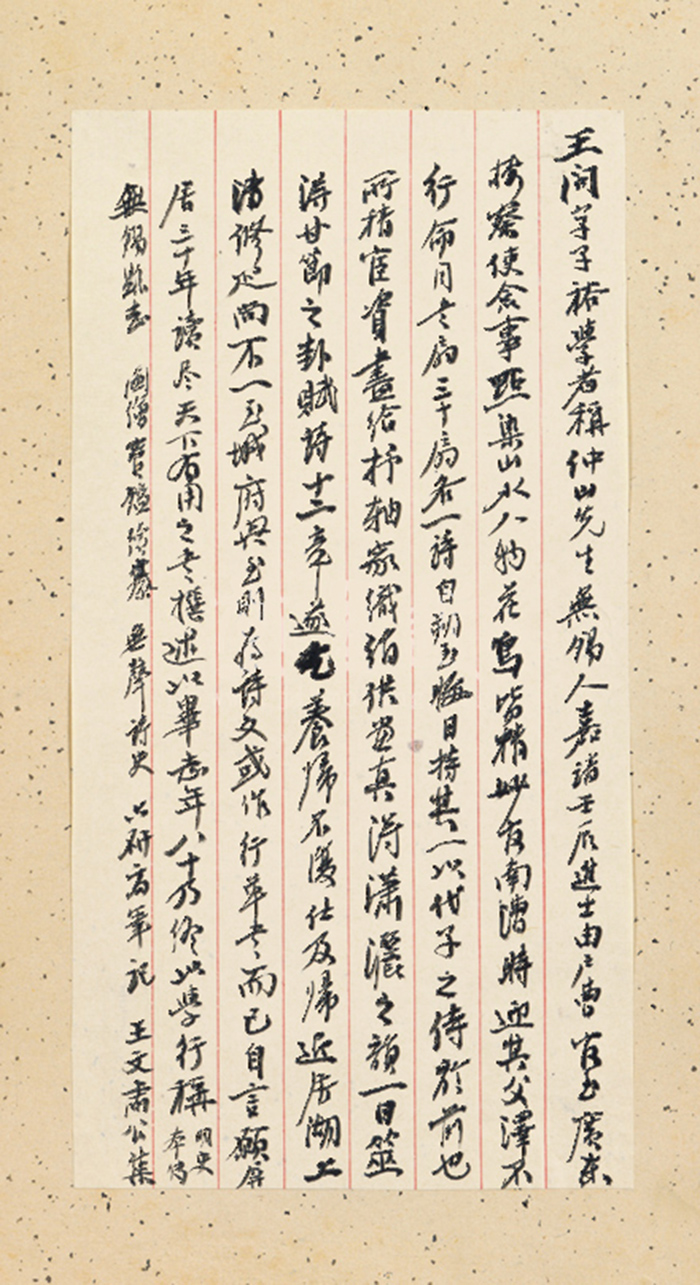 王問字子裕學者稱仲山先生無錫人嘉靖壬辰進士由户曹官至廣東
按察使僉事點染山水人物花鳥皆精妙官南漕時迎其父澤不
行命月書扇三十扇各一詩自朔至晦日持其一以代子之侍於前也
所積宦資盡給杼軸家織絹供畫真得瀟灑之韻一日筮
得甘節之卦賦詩十二章遂乞養歸不復仕及歸近居湖上
清修 而不一至城府與至則為詩文或作行草書而已自言願屏
居三十年讀尽天下有用之書撰述以畢志年八十乃終以學行稱 明史本傳
無錫縣志 画繒寶鑑續纂 無聲詩史 六研齋筆記 王文肅公集